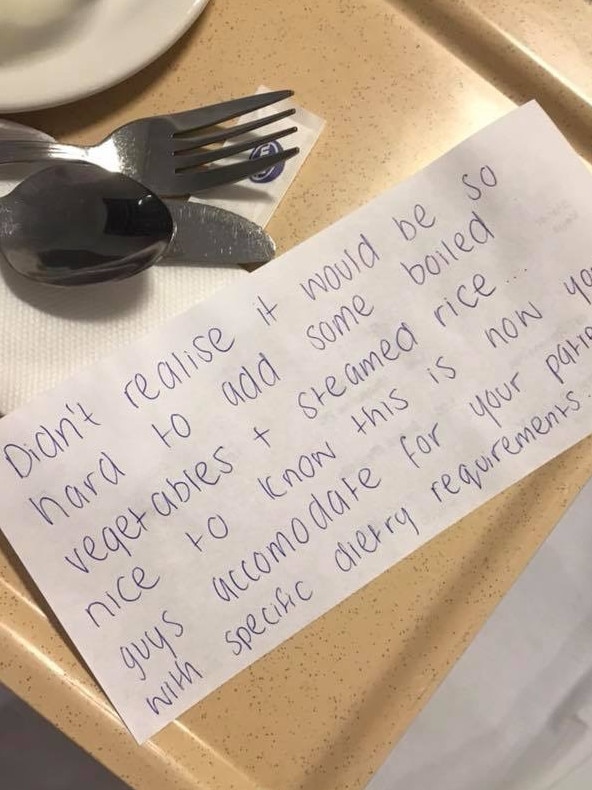 Didn't realise it would be so
hard to add some boiled
vegetables + steamed rice...
nice to know this is now
guys accomodate for your
with specific dietry requirements..